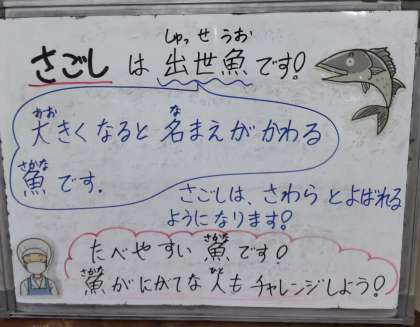 しゅっ せ うお
さごし は 出世魚です!
おお な
大きくなると 名まえが かわる
さかな
魚 です.
さごしは、さわら とよばれる
ようになります!
さかな
たべやすい 魚です!
さかな ひと
魚がにがてな 人も チャレンジしよう!